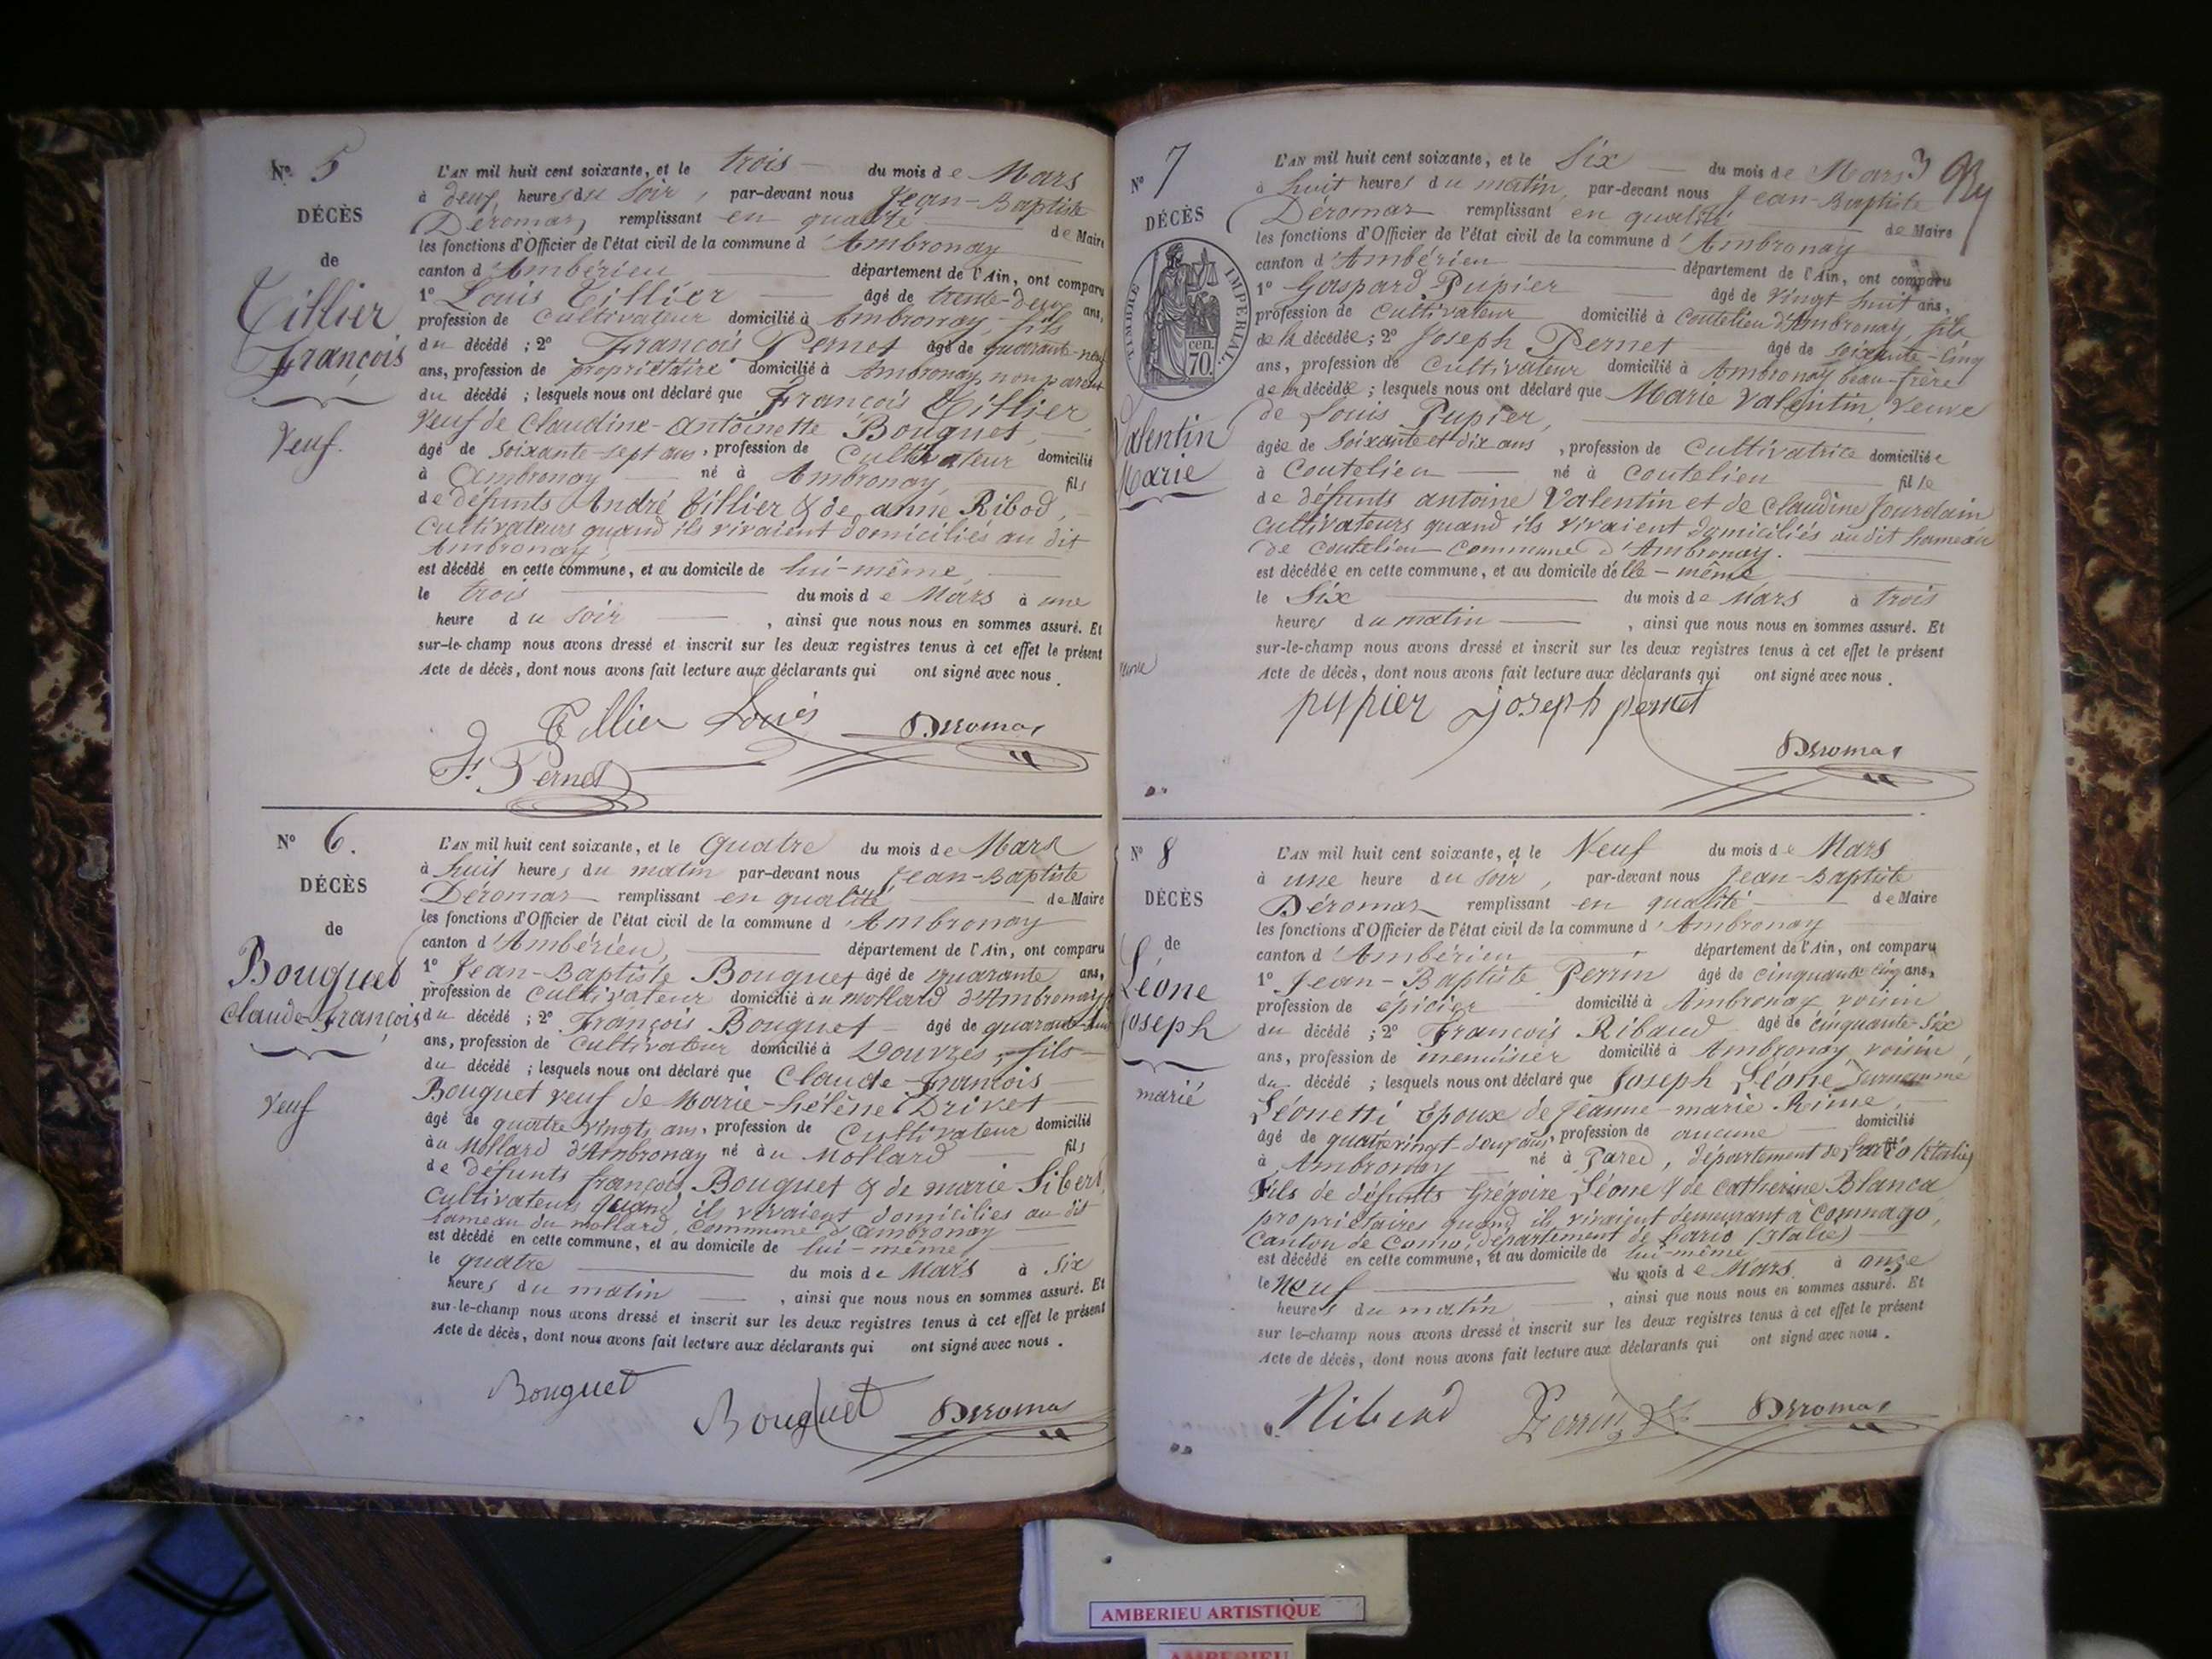 N° 5
DÉCÈS
de
Tillier
François
Veuf.
L'AN mil huit cent soixante, et le trois du mois de Mars
à deux heures du soir, par-devant nous Jean-Baptiste
Déromas remplissant en qualité de Maire
les fonctions d'Officier de l'état civil de la commune d'Ambronay
canton d'Ambérieu département de l'Ain, ont comparu
1° Louis Tillier âgé de trente-deux ans,
profession de cultivateur domicilié à Ambronay, fils
du décédé ; 2° François Pernet âgé de quarante-neuf
ans, profession de propriétaire domicilié à Ambronay, non parent
du décédé ; lesquels nous ont déclaré que François Tillier,
veuf de Claudine-Antoinette Bouquet,
âgé de soixante-sept ans, profession de Cultivateur domicilié
à Ambronay né à Ambronay, fils
de défunts André Tillier & de anne Ribod,
cultivateurs quand ils vivaient domiciliés au dit
Ambronay,
est décédé en cette commune, et au domicile de lui-même,
le trois du mois de Mars à une
heure du soir, ainsi que nous nous en sommes assuré. Et
sur-le-champ nous avons dressé et inscrit sur les deux registres tenus à cet effet le présent
Acte de décès, dont nous avons fait lecture aux déclarants qui ont signé avec nous.
Tillier Louis Déromas
F. Pernet
N° 6.
DÉCÈS
de
Bouquet
Claude-François
Veuf
L'AN mil huit cent soixante, et le quatre du mois de Mars
à huit heures du matin par-devant nous Jean-Baptiste
Déromas remplissant en qualité de Maire
les fonctions d'Officier de l'état civil de la commune d'Ambronay
canton d'Ambérieu, département de l'Ain, ont comparu
1° Jean-Baptiste Bouquet âgé de quarante ans,
profession de cultivateur domicilié au mollard d'Ambronay, fils
du décédé ; 2° François Bouquet âgé de
ans, profession de cultivateur domicilié à Douvres, fils
du décédé ; lesquels nous ont déclaré que Claude-François
Bouquet veuf de Marie-hélène Drivet
âgé de quatre vingts ans, profession de Cultivateur domicilié
au Mollard d'Ambronay né au Mollard fils
de défunts françois Bouquet & de marie Sibert,
cultivateurs quand ils vivaient domiciliés au dit
hameau du mollard, commune d'ambronay
est décédé en cette commune, et au domicile de lui-même,
le quatre du mois de Mars à six
heures du matin, ainsi que nous nous en sommes assuré. Et
sur-le-champ nous avons dressé et inscrit sur les deux registres tenus à cet effet le présent
Acte de décès, dont nous avons fait lecture aux déclarants qui ont signé avec nous.
Bouquet
Bouquet Déromas
3
N° 7
DÉCÈS
TIMBRE IMPERIAL.
70. cen.
Valentin
Marie
veuve
L'AN mil huit cent soixante, et le Six du mois de Mars
à huit heures du matin, par-devant nous Jean-Baptiste
Déromas remplissant en qualité de Maire
les fonctions d'Officier de l'état civil de la commune d'Ambronay
canton d'Ambérieu département de l'Ain, ont comparu
1° Gaspard Pupier âgé de vingt huit ans,
profession de cultivateur domicilié à Coutelieu d'Ambronay, fils
de la décédée ; 2° Joseph Pernet âgé de soixante-cinq
ans, profession de cultivateur domicilié à Ambronay beau-frère
de la décédée ; lesquels nous ont déclaré que Marie Valentin, veuve
de Louis Pupier,
âgée de soixante et dix ans, profession de cultivatrice domiciliée
à Coutelieu né à Coutelieu fille
de défunts antoine Valentin et de claudine Jourdain
cultivateurs quand ils vivaient domiciliés audit hameau
de coutelieu commune d'Ambronay.
est décédée en cette commune, et au domicile d'elle-même
le Six du mois de Mars à trois
heures du matin, ainsi que nous nous en sommes assuré. Et
sur-le-champ nous avons dressé et inscrit sur les deux registres tenus à cet effet le présent
Acte de décès, dont nous avons fait lecture aux déclarants qui ont signé avec nous.
pupier joseph pernet
Déromas
N° 8
DÉCÈS
de
Léone
Joseph
marié
L'AN mil huit cent soixante, et le Neuf du mois de Mars
à une heure du soir, par-devant nous Jean-Baptiste
Déromas remplissant en qualité de Maire
les fonctions d'Officier de l'état civil de la commune d'Ambronay
canton d'Ambérieu département de l'Ain, ont comparu
1° Jean-Baptiste Perrin âgé de cinquante cinq ans,
profession de épicier domicilié à Ambronay voisin
du décédé ; 2° François Ribaud âgé de cinquante-six
ans, profession de menuisier domicilié à Ambronay voisin,
du décédé ; lesquels nous ont déclaré que Joseph Léone surnommé
Léonetti Epoux de Jeanne-marie Rime,
âgé de quatrevingt-deux ans, profession de aucune domicilié
à Ambronay né à Pared, département de (Italie)
fils de défunts Grégoire Léone & de catherine Blanca
propriétaires quand ils vivaient demeurant à
canton de Como, département de Lario (Italie)
est décédé en cette commune, et au domicile de lui-même
le Neuf du mois de Mars à onze
heures du matin, ainsi que nous nous en sommes assuré. Et
sur le-champ nous avons dressé et inscrit sur les deux registres tenus à cet effet le présent
Acte de décès, dont nous avons fait lecture aux déclarants qui ont signé avec nous.
Ribaud Perrin Déromas
AMBERIEU ARTISTIQUE
AMBERIEU